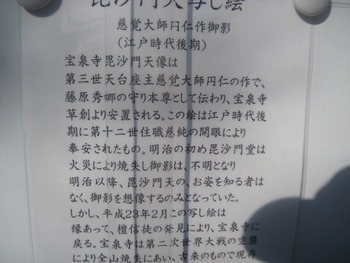 毘沙門天写し絵
慈覚大師円仁作御影
（江戸時代後期）
宝泉寺毘沙門天像は
第三世天台座主慈覚大師円仁の作で、
藤原秀郷の守り本尊として伝わり、宝泉寺
草創より安置される。この絵は江戸時代後
期に第十二世住職慈純の開眼により
奉安されたもの。明治の初め毘沙門堂は
火災により焼失し御影は、不明となり
明治以降、毘沙門天の、お姿を知る者は
なく、御影を想像するのみとなっていた。
しかし、平成23年2月この写し絵は
縁あって、檀信徒の発見により、宝泉寺に
戻る。宝泉寺は第二次世界大戦の空襲
により全山焼失にあい、古来のもので現存